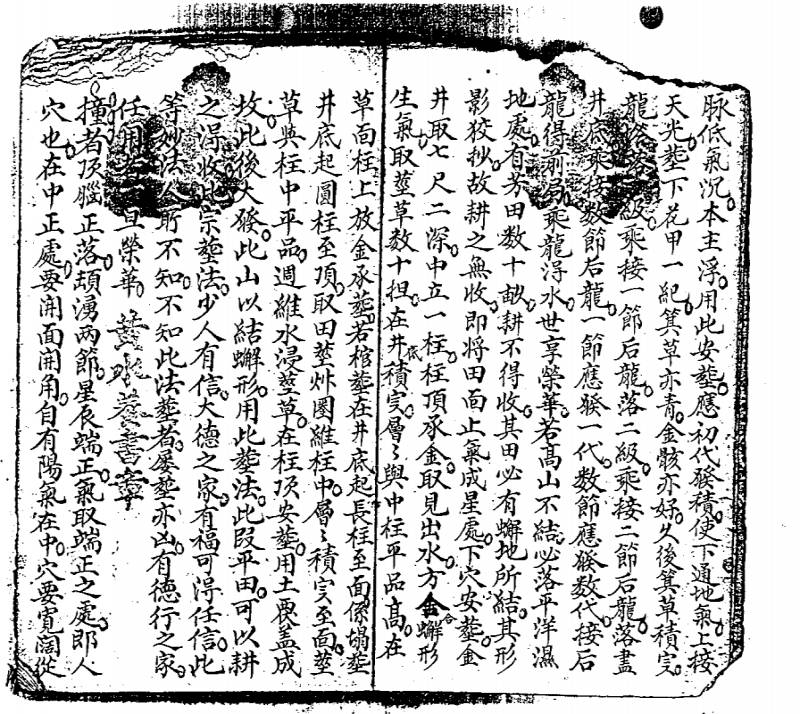 脉低氣沉本主浮用此安塟應初代發積使下通地氣上接
天光塟下花甲一紀箕草亦青金骸亦好久後箕草積寔
龍落一級乘接一節后龍落二級乘接二節后龍落盡
井底乘接数節后龍一節應發一代数節應發数代接后
龍得前局乘龍淂水世享榮華若髙山不結必落平洋濕
地處有芳田数十畝耕不得收其田必有蠏地所結其形
影狡抄故耕之無收即將田面止氣成星處下穴安塟金
井取七尺二深中立一柱柱頂承金取見出水方合蠏形
生氣取莖草数十担在井底積寔層〻與中柱平品髙在
草面柱上放金承塟若棺塟在井底起長柱至面係塌塟
井底起圓柱至頂取田莖炸圏維柱中層〻積寔至面莖
草與柱中平品週維水浸莖草在柱頂安塟用土畏盖成
坟此後大發此山以結蠏形用此塟法此段平田可以耕
之淂收此宗塟法少人有信大德之家有福可淂任信此
等妙法人所不知不知此法塟者屡塟亦凶有德行之家
任用者一旦榮華
撞者頂腦正落頏湧兩節星辰端正氣取端正之處郎人
穴也在中正處要開面開角自有陽氣在中穴要寬闊從